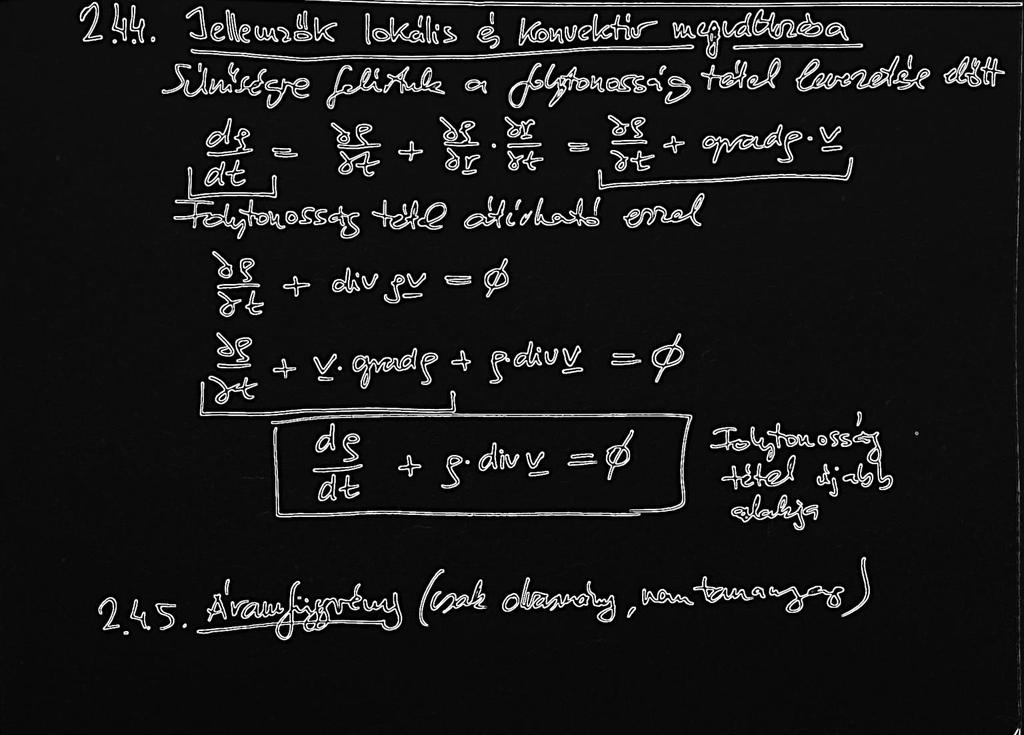 2.4.4. Jellemzők lokális és konvektív megváltozása
Sűrűségre felírtuk a folytonosság tétel levezetése előtt
dρ/dt = ∂ρ/∂t + ∂ρ/∂r · ∂r/∂t = ∂ρ/∂t + grad ρ · v
Folytonosság tétel átírható ezzel
∂ρ/∂t + div ρv = ∅
∂ρ/∂t + v · grad ρ + ρ · div v = ∅
dρ/dt + ρ · div v = ∅
Folytonosság
tétel újabb
alakja
2.4.5. Áramfüggvény (csak olvasmány, nem tananyag)